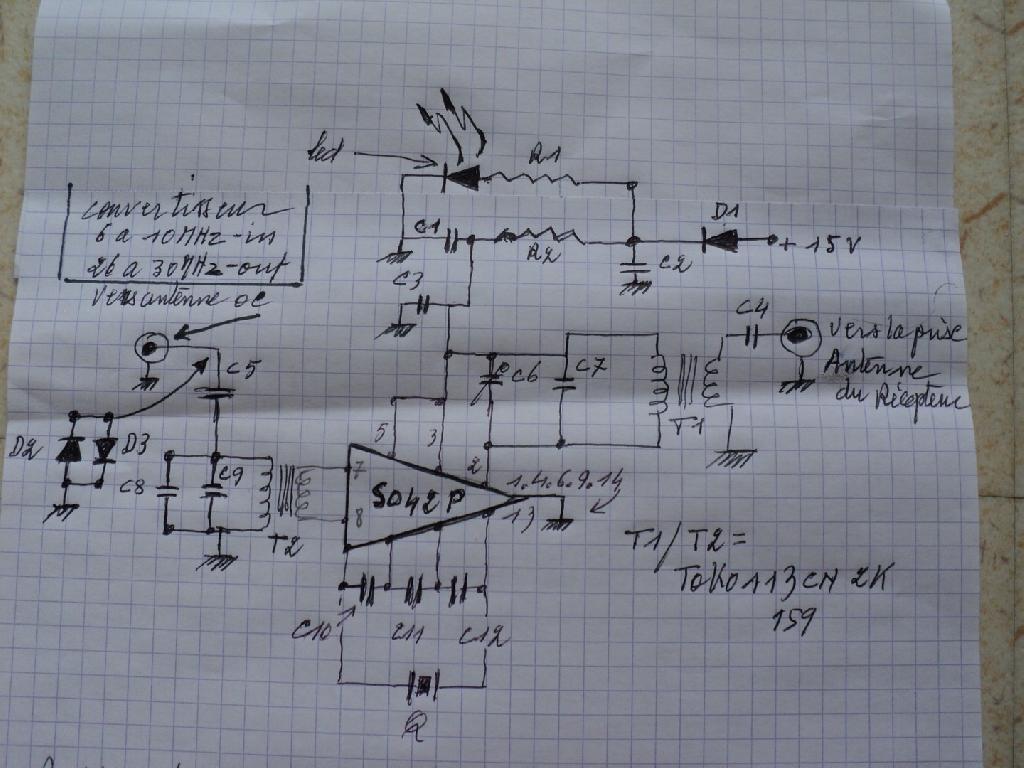 led
R1
convertisseur
6 a 10MHz-in
26 a 30MHz-out
Vers antenne oc
C1
R2
D1
+ 15V
C2
C3
C4
Vers la prise
Antenne
du Récepteur
C5
C6
C7
T1
D2
D3
5
3
2
C8
C9
7
8
SO42P
1.4.6.9.14
13
T2
T1/T2=
TOKO113CN 2K
159
C10
C11
C12
Q